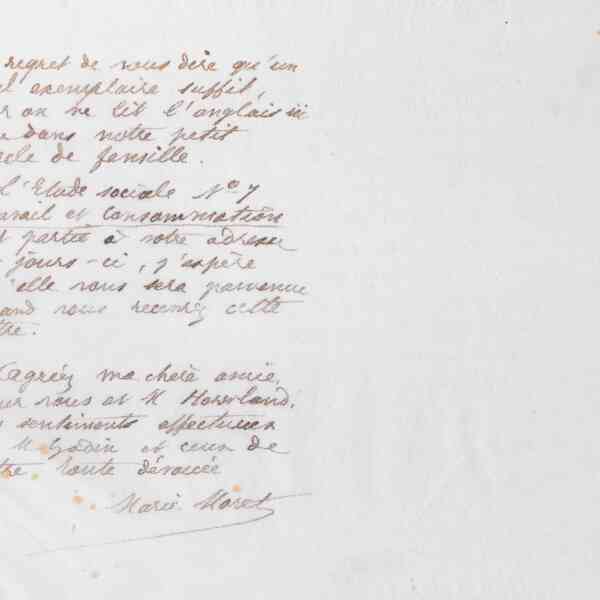 regret de vous dire qu'un
l exemplaire suffit,
r on ne lit l'anglais ici
e dans notre petit
cle de famille.
l'Etude sociale No 7
avail et Consommation
t partie à votre adresse
jours-ci, j'espère
'elle vous sera parvenue
and vous recevrez cette
tre.
agréez ma chère amie,
ur vous et M Howland,
s sentiments affectueux
M Godin et ceux de
tre toute dévouée
Marie Moret